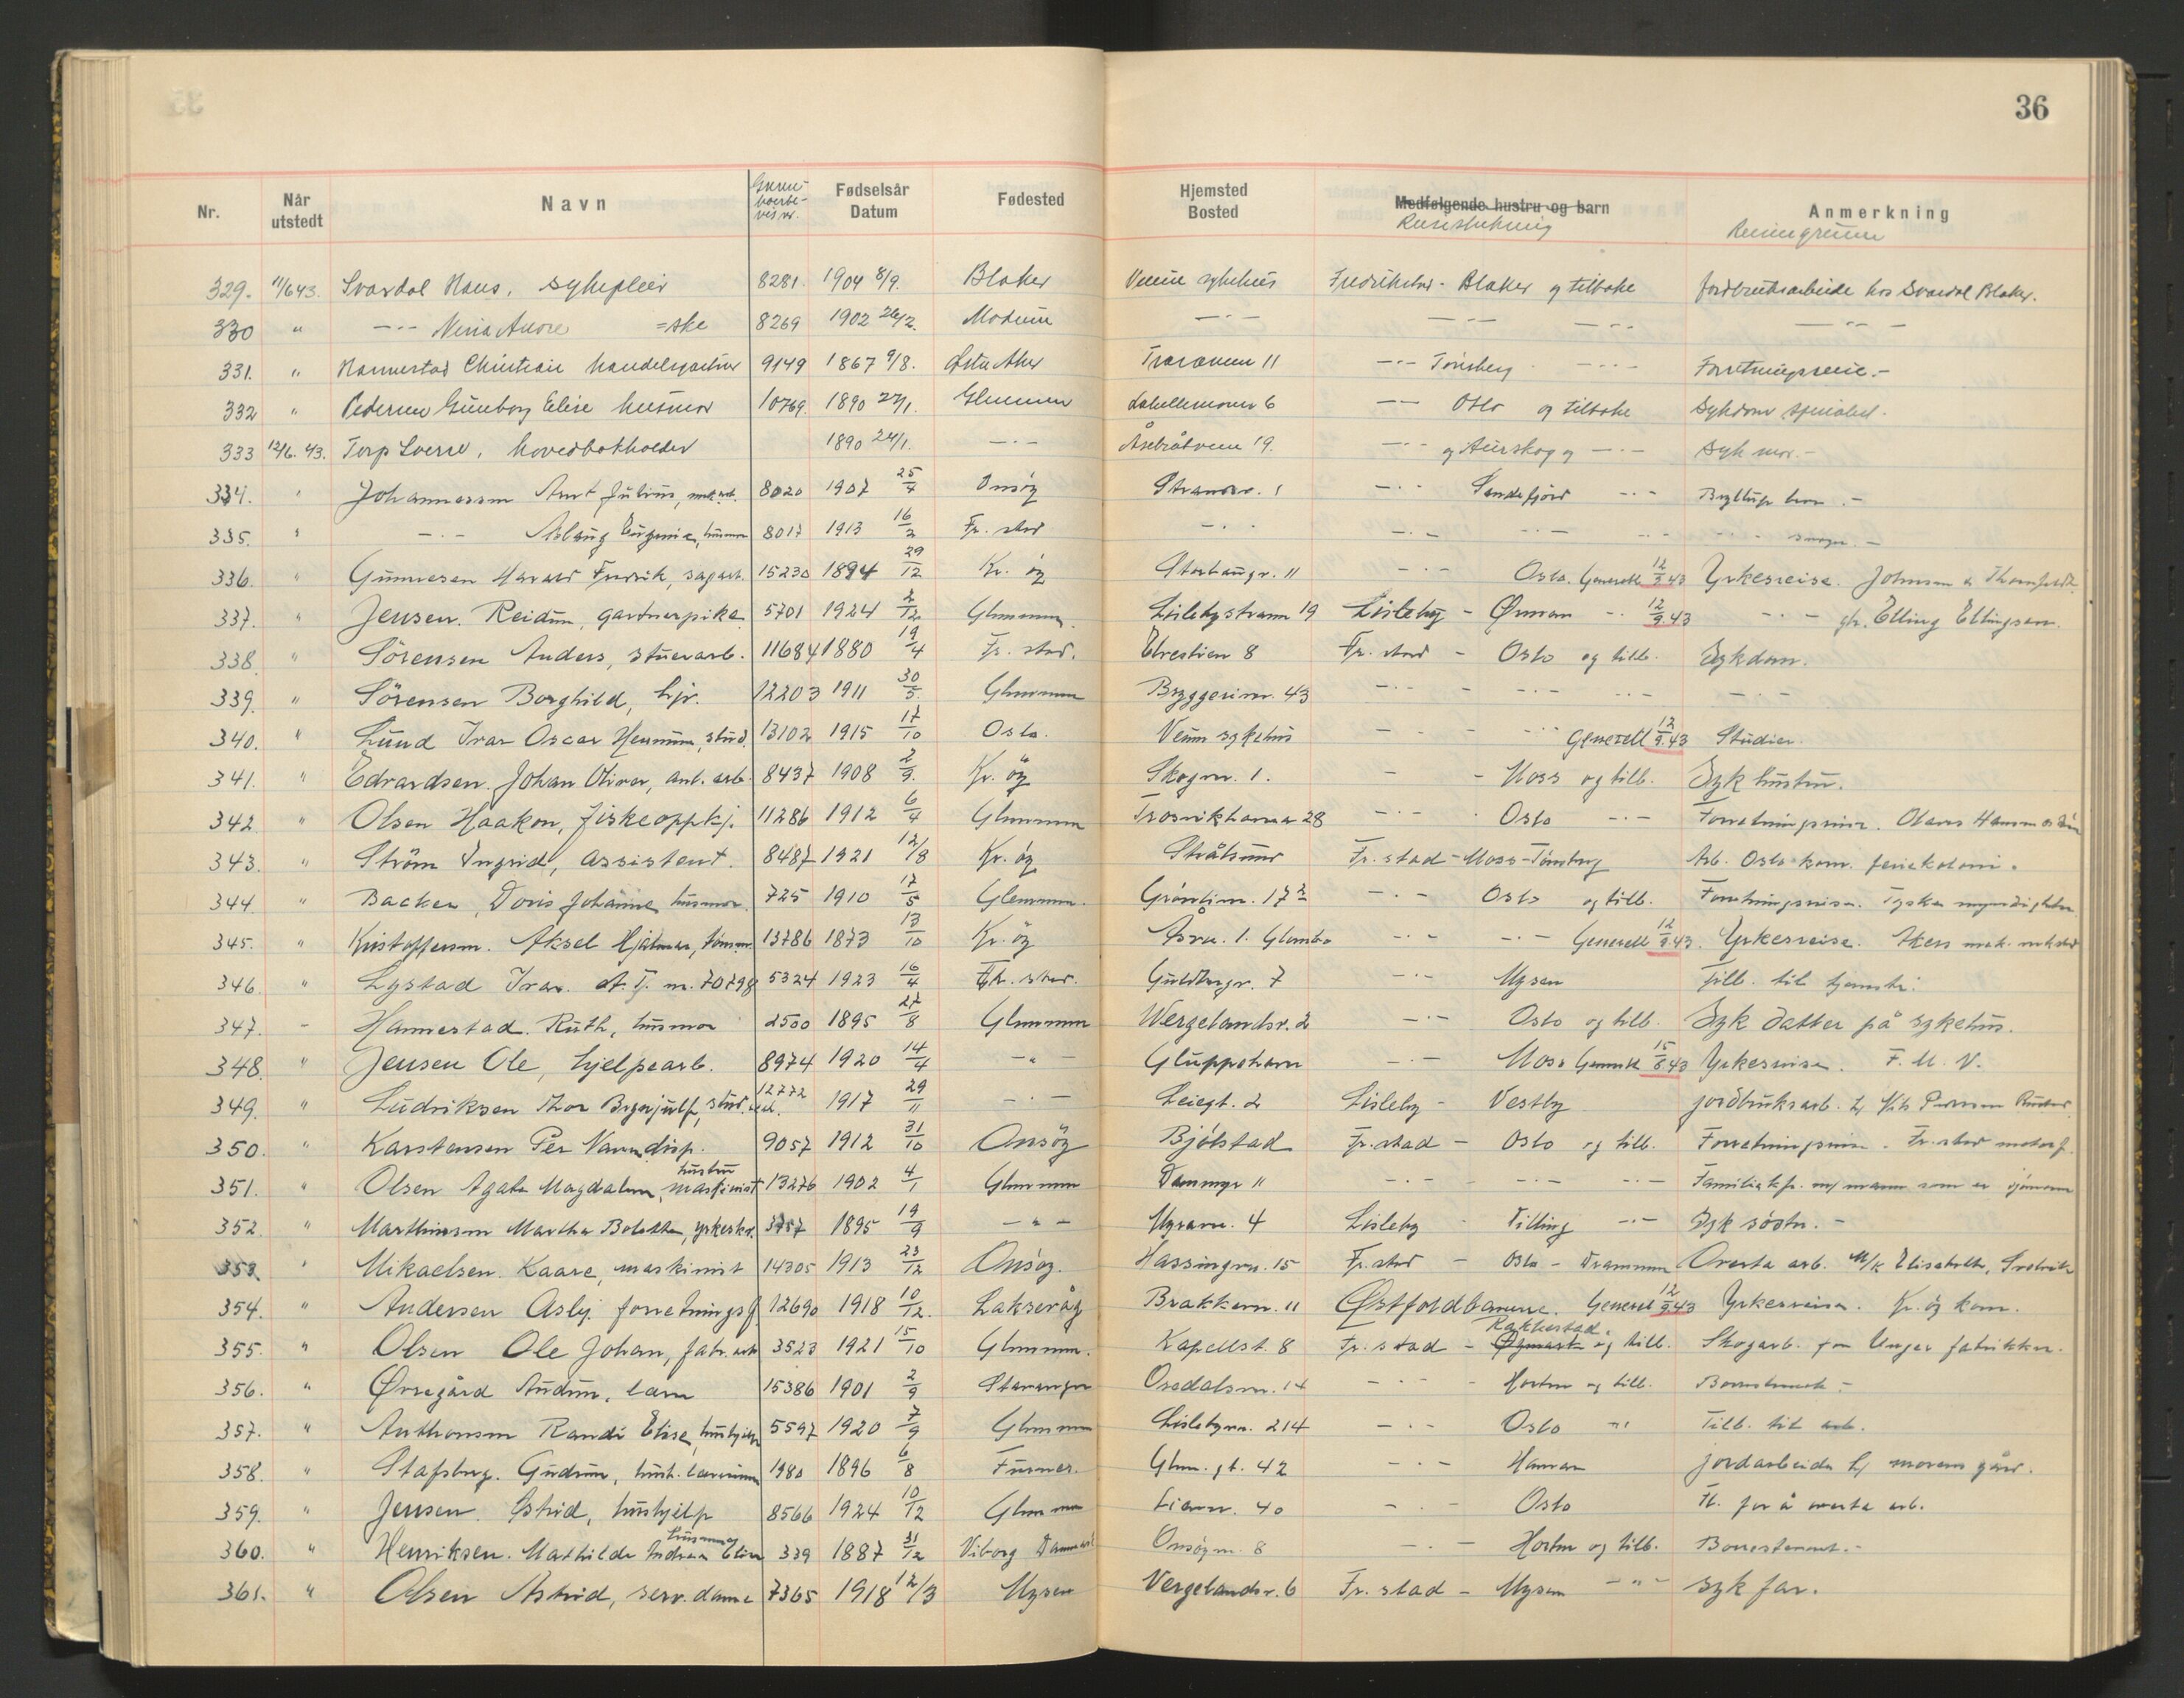 36
Nr. Når utstedt Navn Grense- boerbe- vis nr. Fødselsår Datum Fødested Hjemsted Bosted Medfølgende hustru og barn Reisestrekning Anmerkning
329. 11/6 43. Svardal Hans, sykepleier 8281 1904 8/9. Blaker Veum sykehus Fredrikstad - Blaker og tilbake Jordbruksarbeide hos Svardal Blaker.
330 " -·- =ske 8269 1902 26/2. Modum -·- -·- -·- -·-
331. " Hannestad Christian 9149 1867 9/8. Traraveien 11 -·- Tönsberg -·- Forretningsreise.-
332 " Pedersen Gunborg Elise husmor 10769 1890 27/1. Glemmen 6 -·- Oslo og tilbake Sykdom spesialist.
333 12/6. 43. Torp Sverre, hovedbokholder 1890 24/1. -·- Åsebråtveien 19. -·- og Aurskog og -·- Syk mor.-
334. " Johannessen Arnt Julius, mek.arb. 8020 1907 25/4 Onsöy Strandv. 1 -·- Sandefjord -·- Bryllup hos .-
335. " -·- Aslaug Eugenie, husmor 8017 1913 16/2 Fr. stad -·- -·- -·- -·- -·-
336. " Gunnesen Harald Fredrik, sagarb. 15230 1894 29/12 Kr. öy Storhaugv. 11 -·- Oslo. Generell 12/9 43 Yrkesreise. Johnsen &
337. " Jensen. Reidun, gartnerpike 5701 1924 2/12 Glemmen. Lislebystrann 19 Lisleby - -·- 12/9 43 -·- gr. Elling Ellingsen.
338. " Sörensen Anders, stuerarb. 11684 1880 19/4 Fr. stad. Elvestien 8 Fr. stad - Oslo og tilb. Sykdom.
339. " Sörensen Borghild, hjr. 12203 1911 30/5 Glemmen Bryggeriv. 43 -·- -·- -·- -·-
340. " Lund Ivar Oscar Henning, stud. 13102 1915 17/10 Oslo. Veum sykehus - - -·- Generell 12/9 43 Studier.
341. " Edvardsen. Johan Oliver, anl. arb. 8437 1908 2/9. Kr. öy Skogv. 1. - - Moss og tilb. Syk hustru.
342. " Olsen Haakon, fiskeoppkj. 11286 1912 6/4 Glemmen Trosvikhavna 28 -·- Oslo -·- Forretningsreise.
343. " Ström Ingrid, assistent. 8487 1921 12/8 Kr. öy Stråtsund Fr. stad - Moss - Tönsberg Arb. Oslo kom. feriekoloni.
344. " Backen, Doris Johanne, husmor. 725 1910 17/5 Glemmen. Grönliv. 17 -·- Oslo og tilb. Forretningsreise. Tyske myndigheter
345. " Kristoffersen. Aksel Hjalmar, tömm. 13786 1873 13/10 Kr. öy Åsv. 1. Glombo -·- -·- Generell 12/9 43. Yrkesreise. Akers mek. verksted
346. " Lystad Ivar. A.T. nr. 70798 5324 1923 16/4 Fr. stad. Guldbergv. 7 -·- Mysen Tilb. til tjeneste.
347. - Hannestad. Ruth, husmor 2500 1895 27/8 Glemmen Wergelandsv. 2 -·- Oslo og tilb. Syk datter på sykehus.
348. " Jensen Ole, hjelpearb. 8974 1920 14/4 -"- Gluppehavn -·- Moss Generell 15/8 43 Yrkesreise. F. M. V.
349. " Ludviksen Thor Brynjulf, stud. 12772 1917 29/11 -·- Leiegt. 2 Lisleby - Vestby jordbruksarb. hj
350. " Karstensen Per Varm disp. 9057 1912 31/10 Onsöy Bjölstad Fr. stad - Oslo og tilb. Forretningsreise. Fr. stad motorf.
351. " Olsen Agate Magdalene, hustru maskinist 13276 1902 4/1 Glemmen Dammyr 11 -·- -·- -·- m/ mann som er sjömann
352. " Marthinsen Martha Bolette, yrkeskv. 3757 1895 19/9 -"- Myrane. 4 Lisleby - Tilling -·- Syk söster.-
353. " Mikaelsen. Kaare, maskinist 14305 1913 23/12 Onsöy. Hassingvn. 15 Fr. stad - Oslo - Drammen Overta arb. M/K Elisabeth,
354. " Andersen Asbj. forretningsf. 12690 1918 10/12. Lakseråg Brakkevn. 11 Østfoldbanene. Generel 12/9 43 Yrkesreise. Kr. öy kom.
355. " Olsen Ole Johan, fabr. arb 3523 1921 15/10 Glemmen. Kapellst. 8 Fr. stad - Rakkestad. og tilb. Skogarb. for Unger fabrikker.
356. " Örsegård Audun, lærer 15386 1901 2/9 Stavanger Oredalsv. 14 -·- Horten og tilb. Borrestevnet.-
357. " Anthonsen Randi Elise, hushjelp 5597 1920 7/9 Glemmen Lislebyvn. 214 -·- Oslo -"- Tilb. til arb.
358. " Stafsberg. Gudrun, hush. lærerinne 1980 1896 6/8 Furnes. Glem. gt. 42 -·- Hamar jordarbeide hj morens gård.
359. " Jensen. Astrid, hushjelp 8566 1924 10/12 Glemmen Lierv. 40 -·- Oslo Fl. for å overta arb.
360. " Henriksen. Mathilde Andrea Eline husmor 339 1887 31/12 Viborg Danmark Onsöyv. 8 -·- Horten og tilb. Borrestevnet.-
361. " Olsen Astrid, serv. dame 7365 1918 12/3 Mysen Vergelandsv. 6 Fr. stad - Mysen -"- syk far.